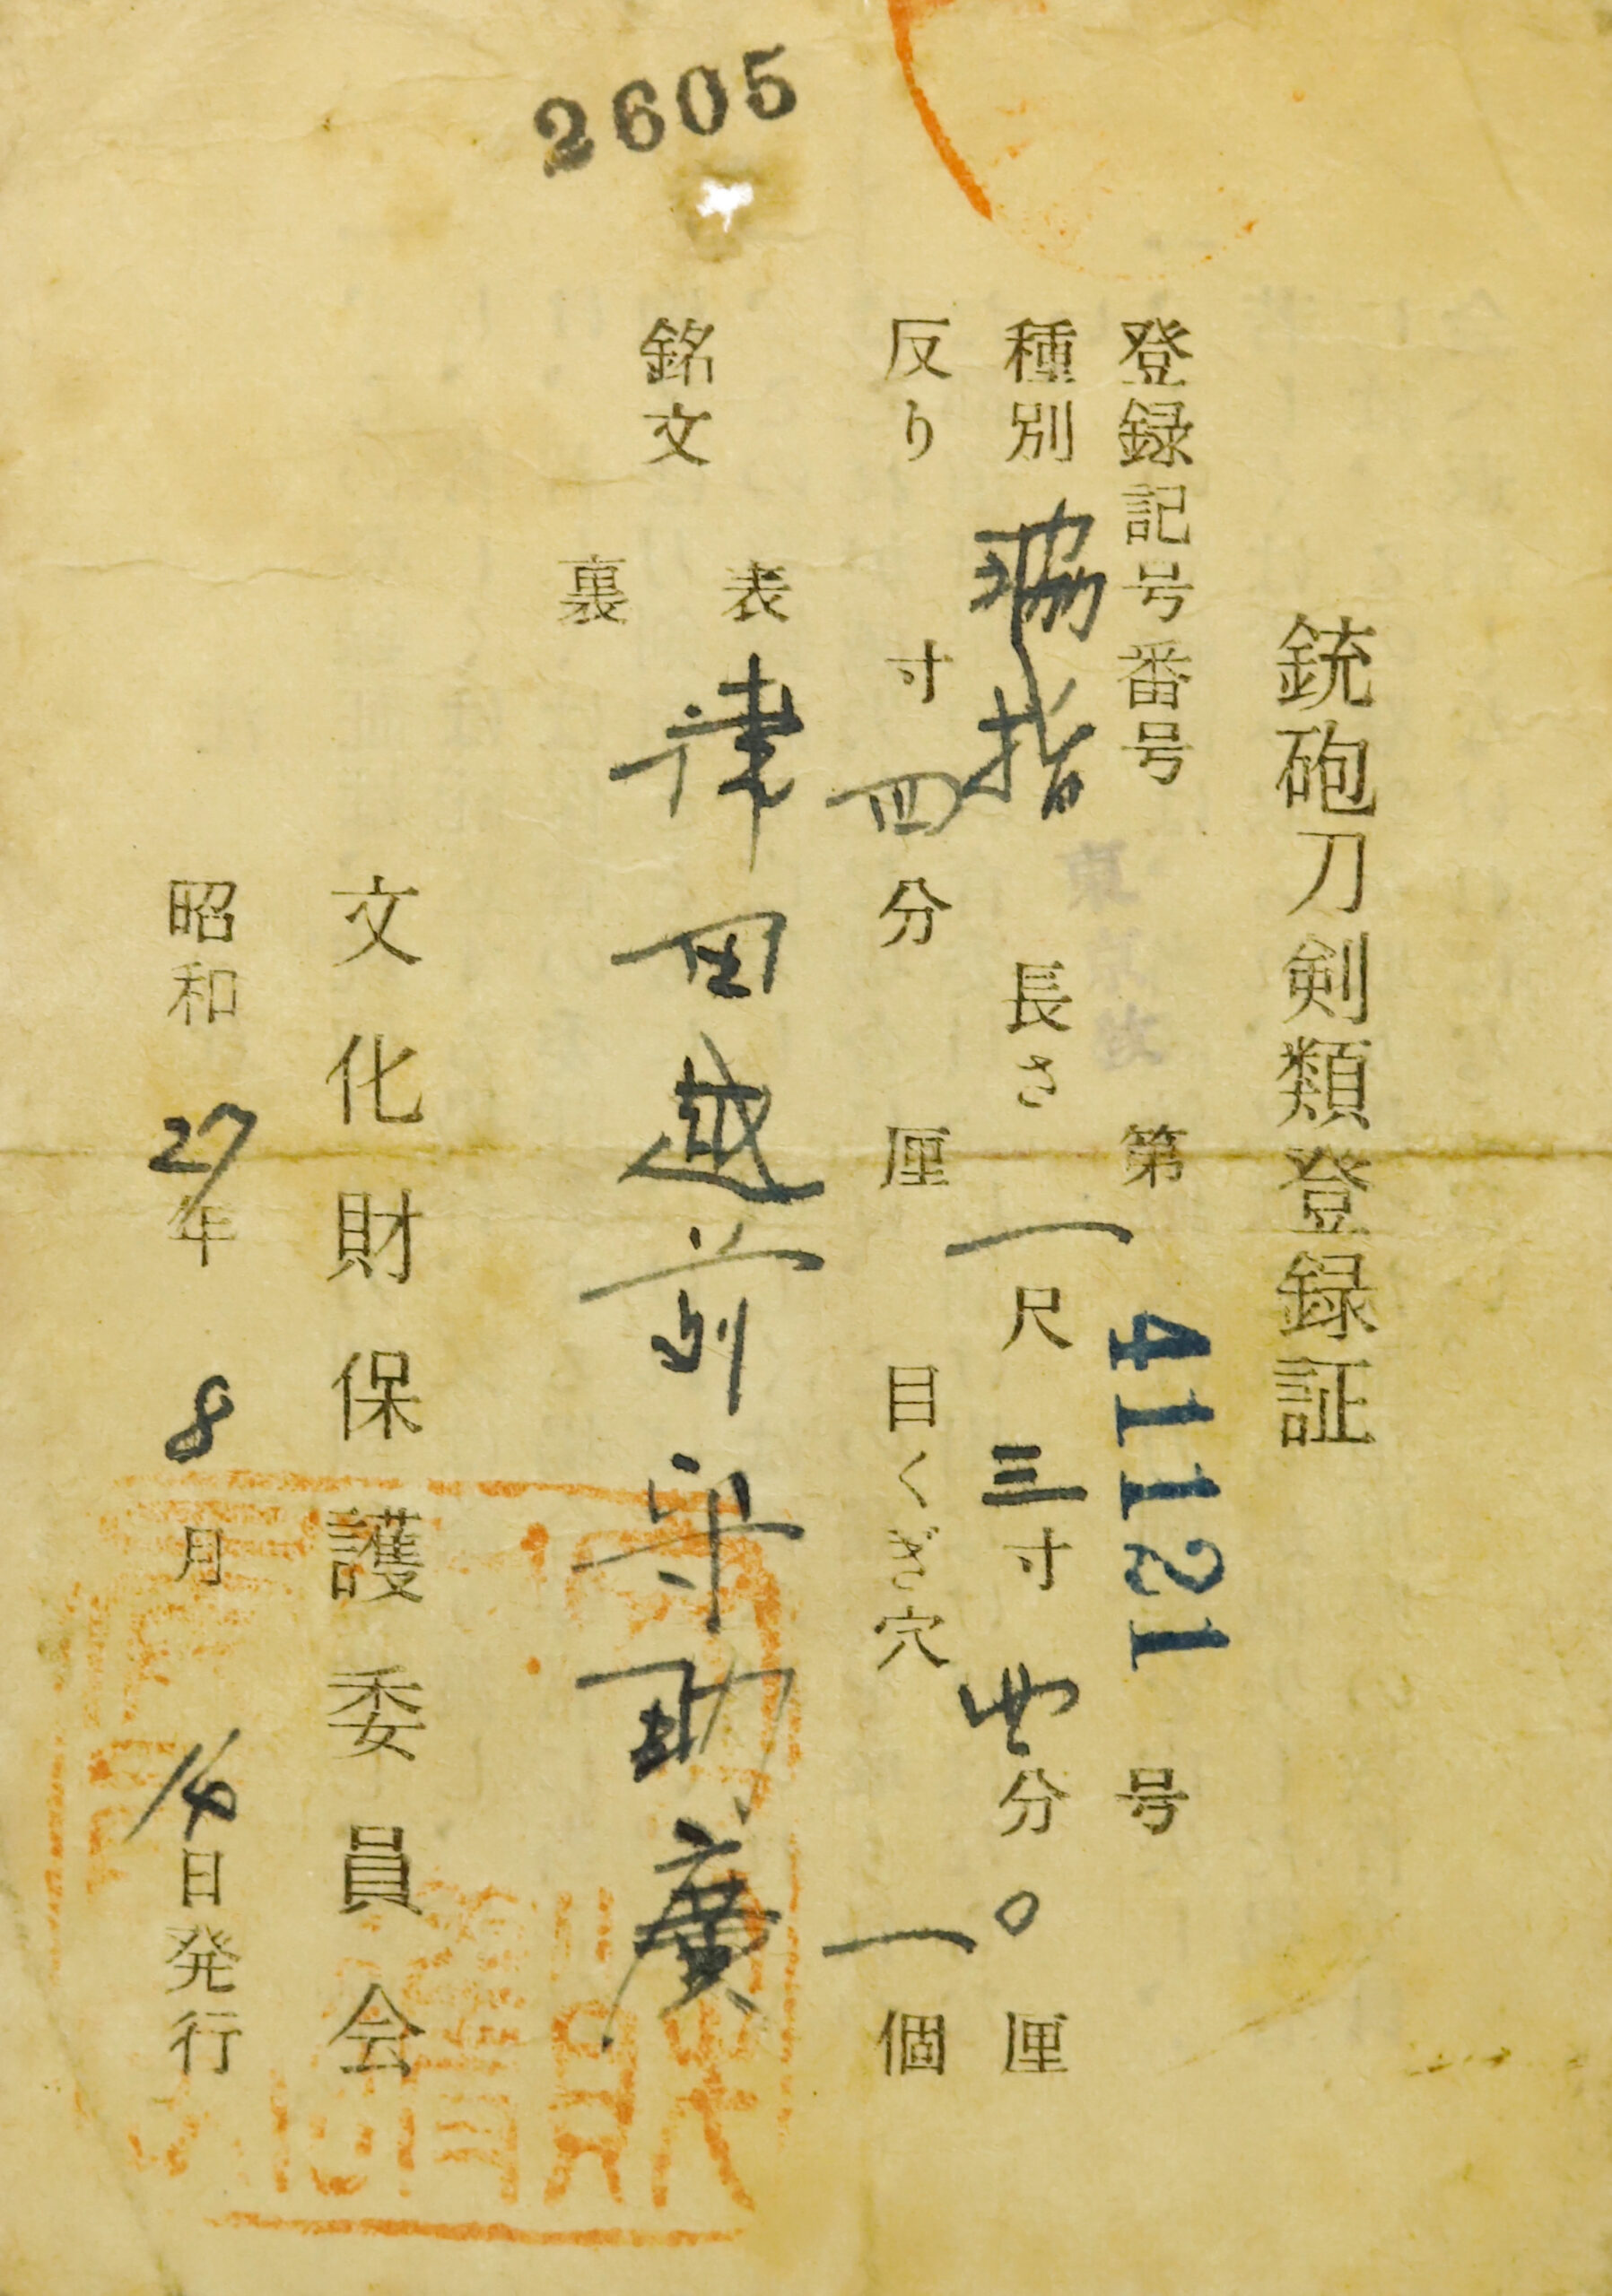 2605
銃砲刀剣類登録証
登録記号番号 第 41121 号
種別 脇指 長さ 一尺 三寸 四分 〇厘
反り 寸 四分 厘 目くぎ穴 一個
銘文 表 津田越前守助廣
裏
文化財保護委員会
昭和 27年 8月 14日発行